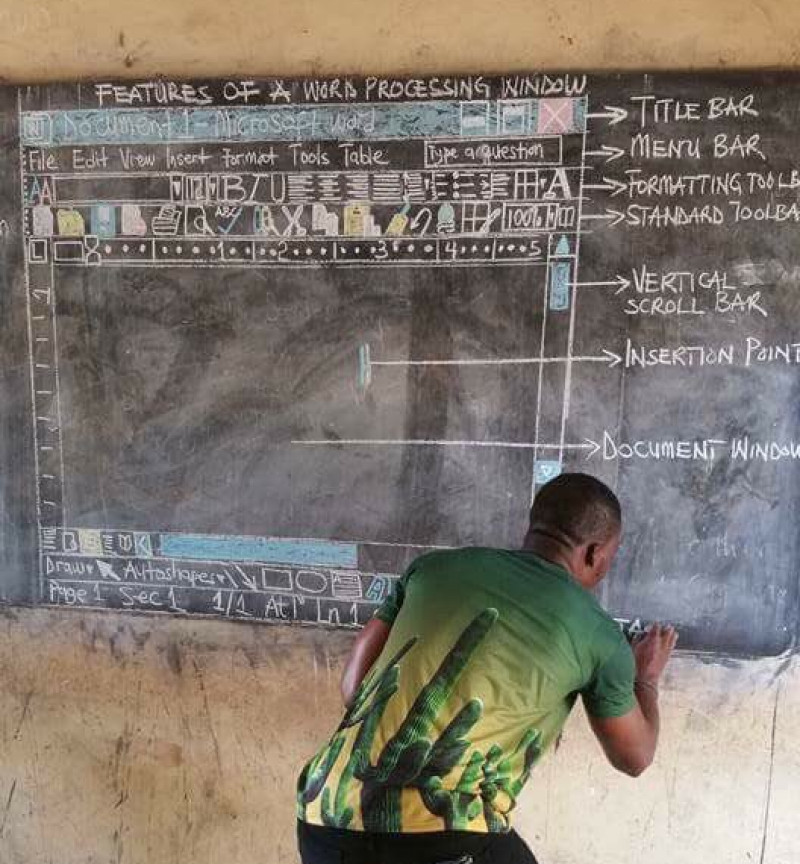 FEATURES OF A WORD PROCESSING WINDOW
Document 1 - Microsoft word
TITLE BAR
File Edit View Insert Format Tools Table
Type a question
MENU BAR
AA
12
B I U
A
FORMATTING TOOLBA
ABC
100%
STANDARD TOOLBA
1 2 3 4 5
VERTICAL
SCROLL BAR
INSERTION POINT
DOCUMENT WINDOW
Draw Autoshapes
A
Page 1 Sec 1 1/1 At 1" Ln 1
TA